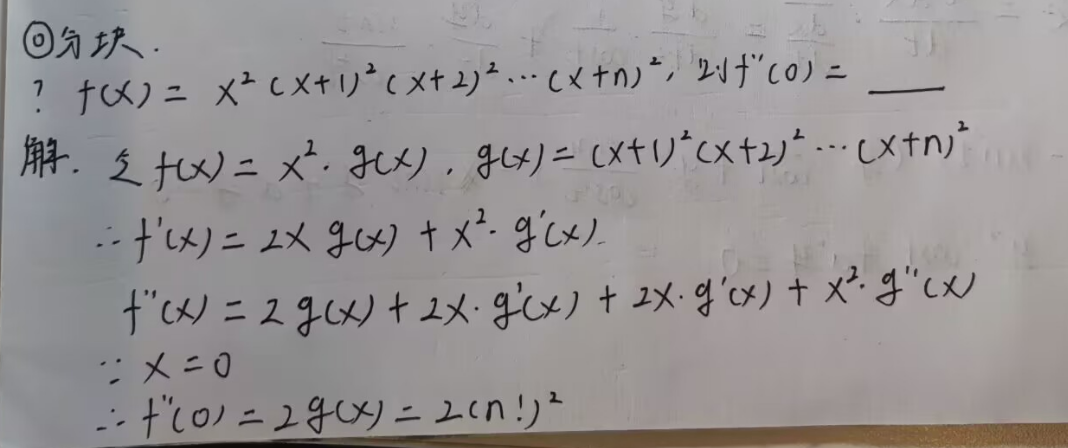 ◎分块.
? f(x) = x²(x+1)²(x+2)²…(x+n)², 则f''(0) = ____
解. 令 f(x) = x²·g(x), g(x) = (x+1)²(x+2)²…(x+n)²
∴ f'(x) = 2x g(x) + x²·g'(x).
f''(x) = 2g(x) + 2x·g'(x) + 2x·g'(x) + x²·g''(x)
∵ x = 0
∴ f''(0) = 2g(x) = 2(n!)²